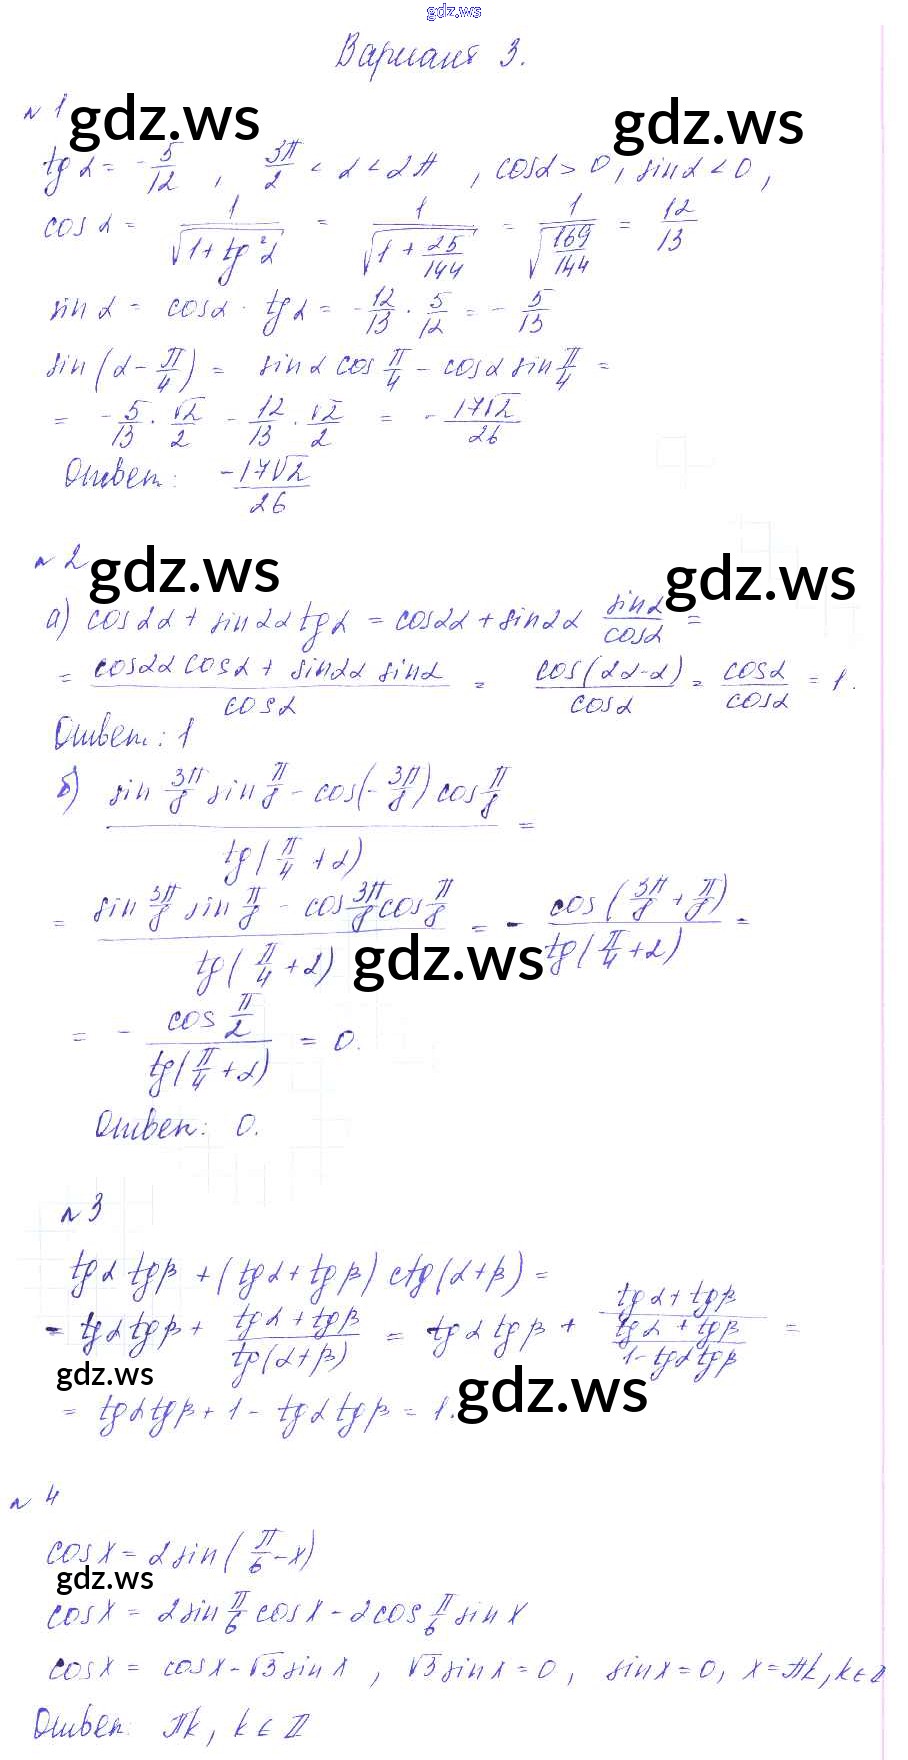 gdz.ws
Вариант 3.
№ 1
gdz.ws gdz.ws
tg α = - 5/12 , 3π/2 < α < 2π , cos α > 0 , sin α < 0 ,
cos α = 1/√(1 + tg²α) = 1/√(1 + 25/144) = 1/√(169/144) = 12/13
sin α = cos α · tg α = - 12/13 · 5/12 = - 5/13
sin (α - π/4) = sin α cos π/4 - cos α sin π/4 =
= - 5/13 · √2/2 - 12/13 · √2/2 = - 17√2/26
Ответ: -17√2/26
№ 2
gdz.ws gdz.ws
а) cos2α + sin2α tg α = cos2α + sin2α sinα/cosα =
= (cos2α cosα + sin2α sinα)/cosα = cos(2α-α)/cosα = cosα/cosα = 1.
Ответ: 1
б) (sin 3π/8 sin π/8 - cos(- 3π/8) cos π/8)/tg(π/4 + α) =
= (sin 3π/8 sin π/8 - cos 3π/8 cos π/8)/tg(π/4 + α) = - cos(3π/8 + π/8)/tg(π/4 + α) =
gdz.ws
= - cos π/2/tg(π/4 + α) = 0.
Ответ: 0.
№ 3
tgα tgβ + (tgα + tgβ) ctg(α+β) =
= tgα tgβ + (tgα + tgβ)/tg(α+β) = tgα tgβ + (tgα + tgβ)/((tgα + tgβ)/(1 - tgα tgβ)) =
gdz.ws gdz.ws
= tgα tgβ + 1 - tgα tgβ = 1.
№ 4
cos x = 2 sin (π/6 - x)
gdz.ws
cos x = 2 sin π/6 cos x - 2 cos π/6 sin x
cos x = cos x - √3 sin x , √3 sin x = 0 , sin x = 0, x = πk, k ∈ Z
Ответ: πk, k ∈ Z